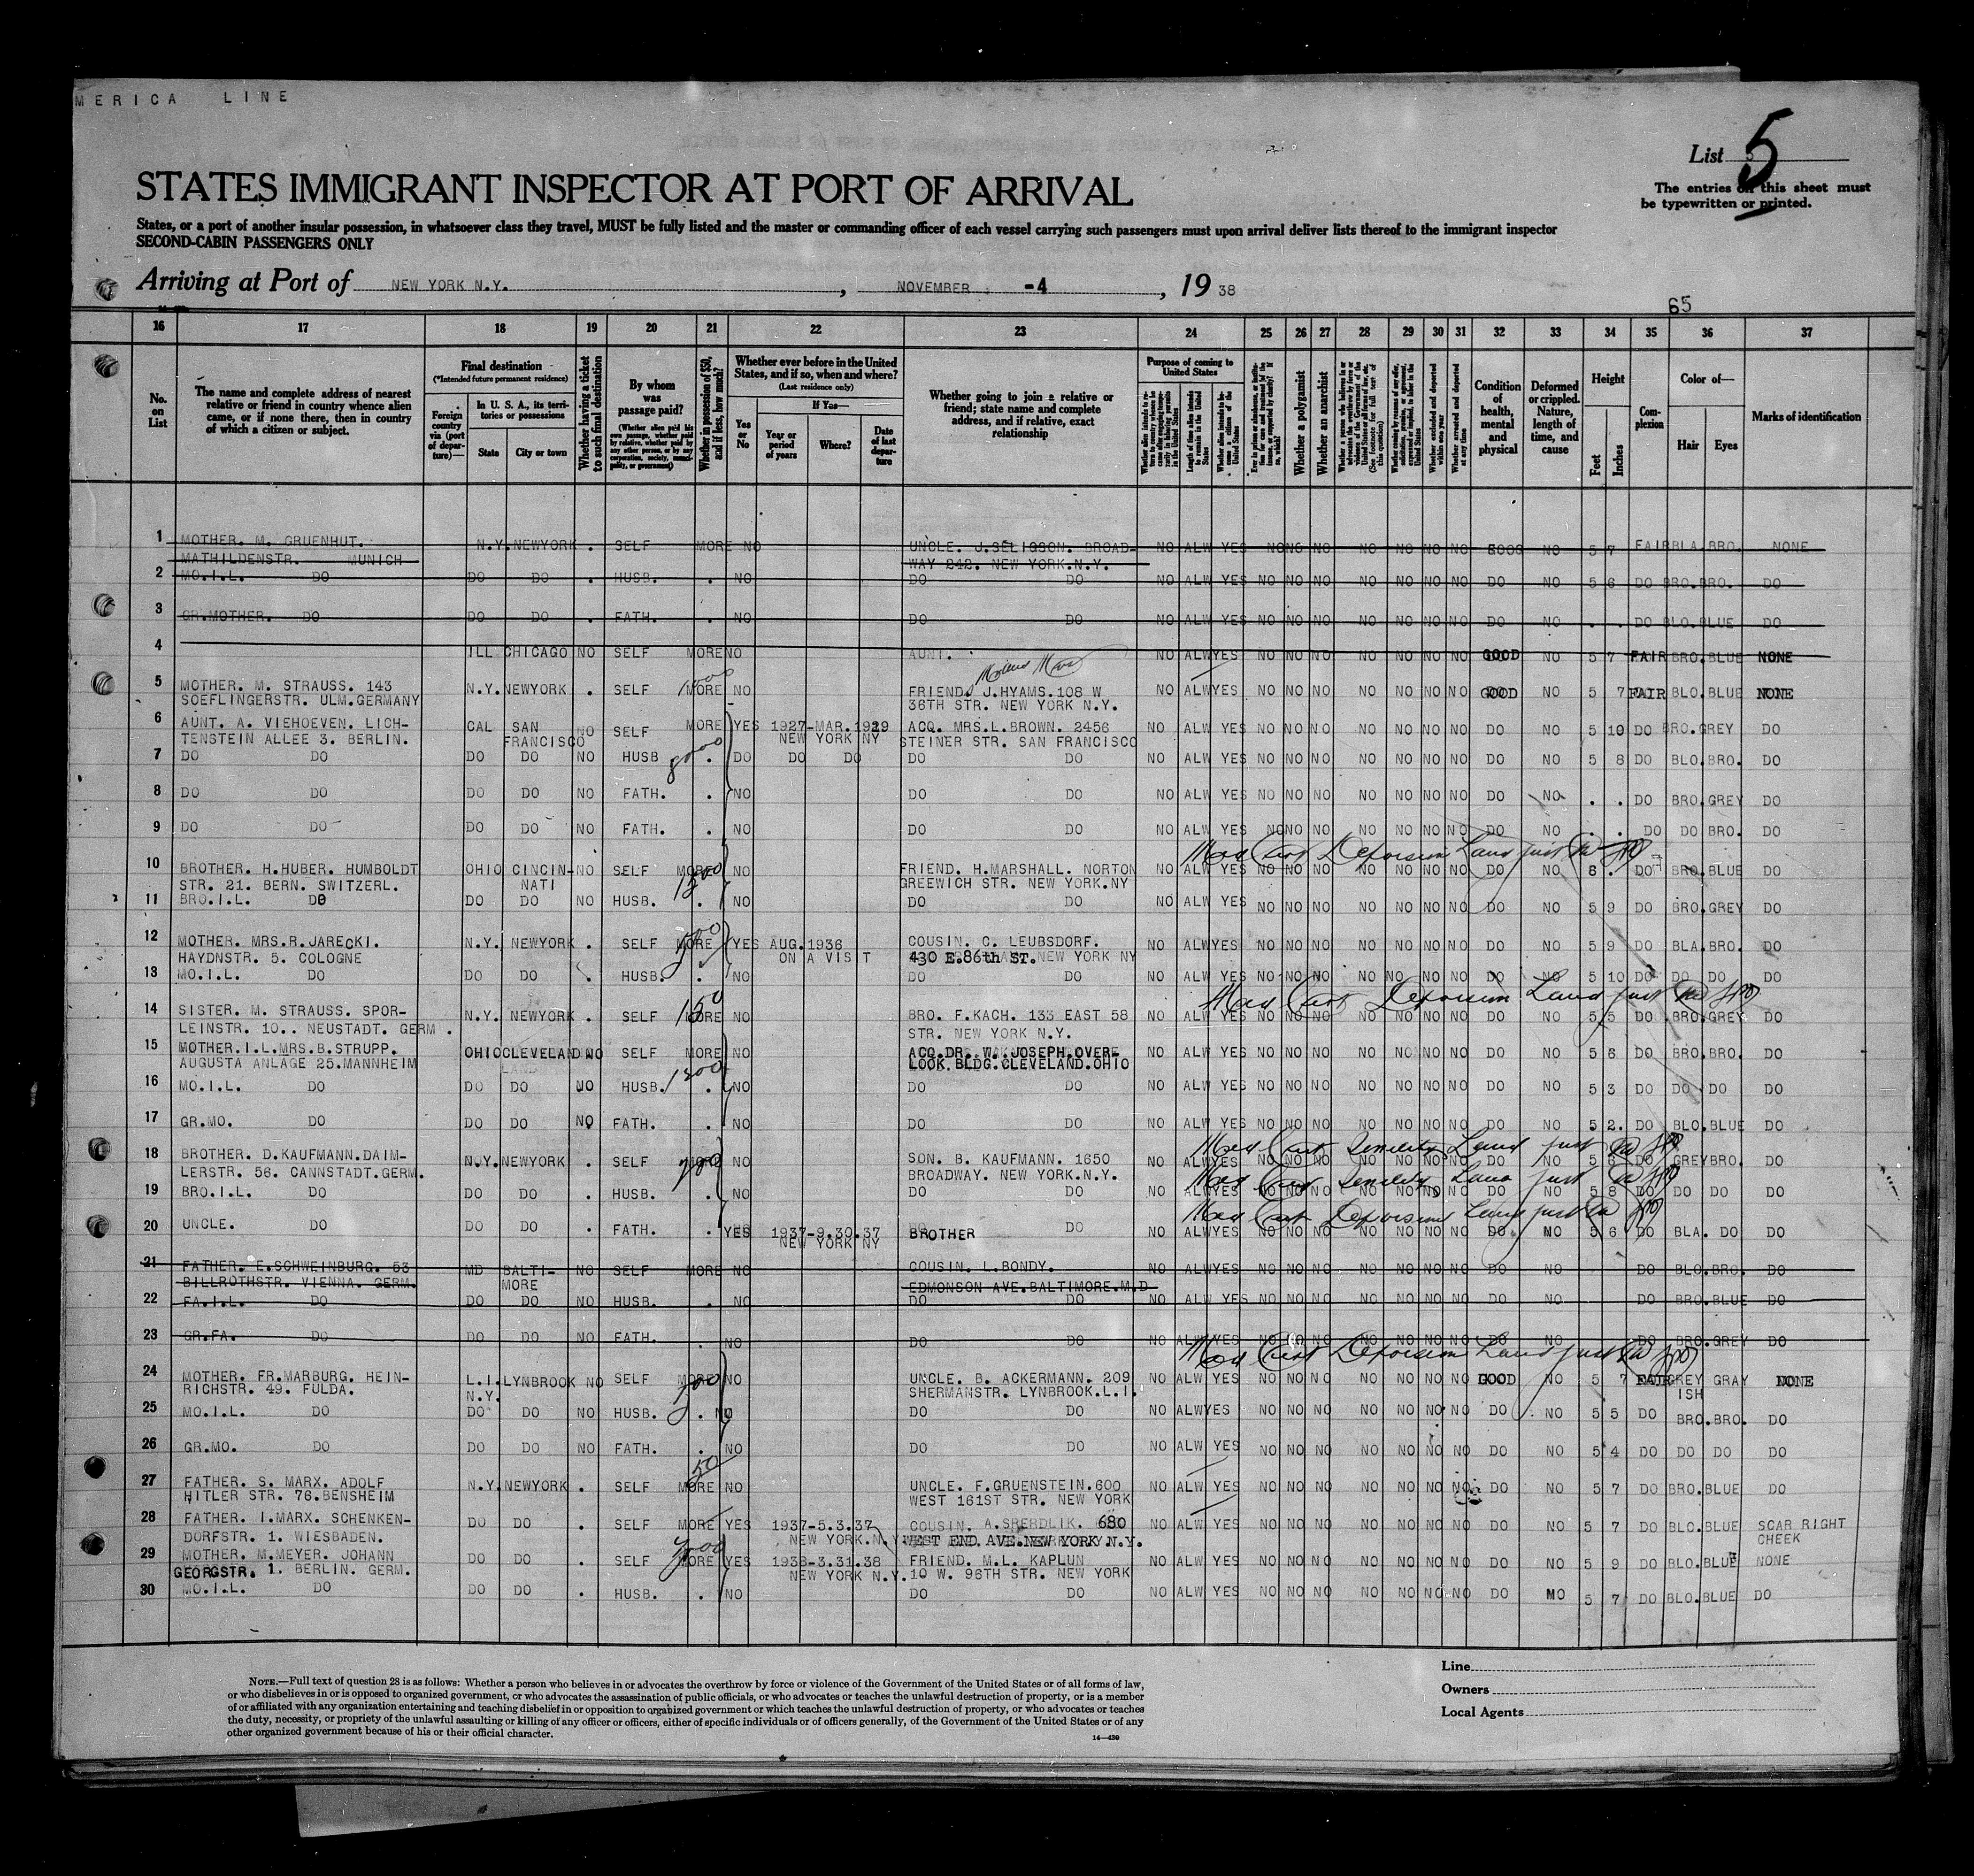 MERICA LINE
List 5
5
STATES IMMIGRANT INSPECTOR AT PORT OF ARRIVAL
The entries on this sheet must
be typewritten or printed.
States, or a port of another insular possession, in whatsoever class they travel, MUST be fully listed and the master or commanding officer of each vessel carrying such passengers must upon arrival deliver lists thereof to the immigrant inspector
SECOND-CABIN PASSENGERS ONLY
Arriving at Port of NEW YORK N.Y. , NOVEMBER -4 , 19 38
65
16 17 18 19 20 21 22 23 24 25 26 27 28 29 30 31 32 33 34 35 36 37
No. on List
The name and complete address of nearest relative or friend in country whence alien came, or if none there, then in country of which a citizen or subject.
Final destination
(*Intended future permanent residence)
Foreign country via (port of departure)—
In U. S. A., its territories or possessions
State
City or town
Whether having a ticket to such final destination
By whom was passage paid?
(Whether alien paid his own passage, whether paid by relative, whether paid by any other person, or by any corporation, society, municipality, or government)
Whether in possession of $50, and if less, how much?
Whether ever before in the United States, and if so, when and where?
(Last residence only)
Yes or No
If Yes—
Year or period of years
Where?
Date of last departure
Whether going to join a relative or friend; state name and complete address, and if relative, exact relationship
Purpose of coming to United States
Whether a polygamist
Whether an anarchist
Condition of health, mental and physical
Deformed or crippled. Nature, length of time, and cause
Height
Feet
Inches
Complexion
Color of—
Hair
Eyes
Marks of identification
1 MOTHER. M. GRUENHUT. N.Y. NEWYORK . SELF MORE NO UNCLE. J.SELIGSON. BROAD- NO ALW YES NO NO NO NO NO NO NO GOOD NO 5 7 FAIR BLA. BRO. NONE
MATHILDENSTR. MUNICH WAY 242. NEW YORK.N.Y.
2 MO.I.L. DO DO DO . HUSB. . NO DO DO NO ALW YES NO NO NO NO NO NO NO DO NO 5 6 DO BRO. BRO. DO
3 GR.MOTHER. DO DO DO . FATH. . NO DO DO NO ALW YES NO NO NO NO NO NO NO DO NO . . DO BLO. BLUE DO
4 ILL CHICAGO NO SELF MORE NO AUNT. NO ALW YES NO NO NO NO NO NO NO GOOD NO 5 7 FAIR BRO. BLUE NONE
5 MOTHER. M. STRAUSS. 143 N.Y. NEWYORK . SELF MORE NO FRIEND. J.HYAMS.108 W NO ALW YES NO NO NO NO NO NO NO GOOD NO 5 7 FAIR BLO. BLUE NONE
SOEFLINGERSTR. ULM.GERMANY 36TH STR. NEW YORK N.Y.
6 AUNT. A. VIEHOEVEN. LICH- CAL SAN NO SELF MORE YES 1927-MAR.1929 ACQ. MRS.L.BROWN. 2456 NO ALW YES NO NO NO NO NO NO NO DO NO 5 10 DO BRO. GREY DO
TENSTEIN ALLEE 3. BERLIN. FRANCISCO NEW YORK NY STEINER STR. SAN FRANCISCO
7 DO DO DO DO NO HUSB 8000 . DO DO DO DO DO NO ALW YES NO NO NO NO NO NO NO DO NO 5 8 DO BLO. BRO. DO
8 DO DO DO DO NO FATH. . NO DO DO NO ALW YES NO NO NO NO NO NO NO DO NO . . DO BRO. GREY DO
9 DO DO DO DO NO FATH. . NO DO DO NO ALW YES NO NO NO NO NO NO NO DO NO . . DO DO BRO. DO
10 BROTHER. H.HUBER. HUMBOLDT OHIO CINCIN- NO SELF MORE NO FRIEND. H.MARSHALL. NORTON NO ALW YES NO NO NO NO NO NO NO DO NO 6 . DO BRO. BLUE DO
STR. 21. BERN. SWITZERL. NATI 1500 GREEWICH STR. NEW YORK.NY
11 BRO.I.L. DO DO DO NO HUSB. . NO DO DO NO ALW YES NO NO NO NO NO NO NO DO NO 5 9 DO BRO. GREY DO
12 MOTHER. MRS.R.JARECKI. N.Y. NEWYORK . SELF MORE YES AUG.1936 COUSIN. C. LEUBSDORF. NO ALW YES NO NO NO NO NO NO NO DO NO 5 9 DO BLA. BRO. DO
HAYDNSTR. 5. COLOGNE ON A VISIT 430 E.86th ST. NEW YORK NY
13 MO.I.L. DO DO DO . HUSB. . NO DO DO NO ALW YES NO NO NO NO NO NO NO DO NO 5 10 DO DO DO DO
14 SISTER. M. STRAUSS. SPOR- N.Y. NEWYORK . SELF MORE 150 NO BRO. F.KACH. 133 EAST 58 NO ALW YES NO NO NO NO NO NO NO DO NO 5 5 DO BRO. GREY DO
LEINSTR. 10.. NEUSTADT. GERM. STR. NEW YORK N.Y.
15 MOTHER.I.L.MRS.B.STRUPP. OHIO CLEVELAND NO SELF MORE NO ACQ.DR. W. JOSEPH.OVER- NO ALW YES NO NO NO NO NO NO NO DO NO 5 6 DO BRO. BRO. DO
AUGUSTA ANLAGE 25.MANNHEIM LOOK BLDG.CLEVELAND.OHIO
16 MO.I.L. DO DO DO NO HUSB. . NO DO DO NO ALW YES NO NO NO NO NO NO NO DO NO 5 3 DO DO DO DO
17 GR.MO. DO DO DO NO FATH. . NO DO DO NO ALW YES NO NO NO NO NO NO NO DO NO 5 2. DO BLO. BLUE DO
18 BROTHER. D.KAUFMANN.DAIM- N.Y. NEWYORK . SELF MORE NO SON. B. KAUFMANN. 1650 NO ALW YES NO NO NO NO NO NO NO DO NO 5 6 DO GREY BRO. DO
LERSTR. 56. CANNSTADT.GERM. BROADWAY. NEW YORK.N.Y.
19 BRO.I.L. DO DO DO . HUSB. . NO DO DO NO ALW YES NO NO NO NO NO NO NO DO NO 5 8 DO DO DO DO
20 UNCLE. DO DO DO . FATH. . YES 1937-9.30.37 BROTHER DO NO ALW YES NO NO NO NO NO NO NO DO NO 5 6 DO BLA. DO DO
NEW YORK NY
21 FATHER. E.SCHWEINBURG. 53 MD BALTI- NO SELF MORE NO COUSIN. L.BONDY. NO ALW YES NO NO NO NO NO NO NO DO NO DO BLO. BRO. DO
BILLROTHSTR. VIENNA. GERM. MORE EDMONSON AVE.BALTIMORE.M.D
22 FA.I.L. DO DO DO NO HUSB. . NO DO DO NO ALW YES NO NO NO NO NO NO NO DO NO DO BRO. BLUE DO
23 GR.FA. DO DO DO NO FATH. . NO DO DO NO ALW YES NO NO NO NO NO NO NO DO NO DO BRO. GREY DO
24 MOTHER. FR.MARBURG. HEIN- L.I. LYNBROOK NO SELF MORE NO UNCLE. B. ACKERMANN. 209 NO ALW YES NO NO NO NO NO NO NO GOOD NO 5 7 FAIR GREY GRAY NONE
RICHSTR. 49. FULDA. N.Y. SHERMANSTR. LYNBROOK.L.I. ISH
25 MO.I.L. DO DO DO NO HUSB. . NO DO DO NO ALW YES NO NO NO NO NO NO NO DO NO 5 5 DO BRO. BRO. DO
26 GR.MO. DO DO DO NO FATH. . NO DO DO NO ALW YES NO NO NO NO NO NO NO DO NO 5 4 DO DO DO DO
27 FATHER. S. MARX. ADOLF N.Y. NEWYORK . SELF MORE 50 NO UNCLE. F.GRUENSTEIN.600 NO ALW YES NO NO NO NO NO NO NO DO NO 5 7 DO BRO. BLUE DO
HITLER STR. 76.BENSHEIM WEST 161ST STR. NEW YORK
28 FATHER. I.MARX. SCHENKEN- DO DO . SELF MORE YES 1937-5.3.37 COUSIN. A.SPERDLIK. 680 NO ALW YES NO NO NO NO NO NO NO DO NO 5 7 DO BLO. BLUE SCAR RIGHT
DORFSTR. 1. WIESBADEN. NEW YORK.N.Y. WEST END AVE.NEW YORK N.Y. CHEEK
29 MOTHER. M.MEYER. JOHANN DO DO . SELF MORE YES 1938-3.31.38 FRIEND. M.L. KAPLUN NO ALW YES NO NO NO NO NO NO NO DO NO 5 9 DO BLO. BLUE NONE
GEORGSTR. 1. BERLIN. GERM. NEW YORK N.Y. 10 W. 96TH STR. NEW YORK
30 MO.I.L. DO DO DO . HUSB. . NO DO DO NO ALW YES NO NO NO NO NO NO NO DO NO 5 7 DO BLO. BLUE DO
NOTE.—Full text of question 28 is as follows: Whether a person who believes in or advocates the overthrow by force or violence of the Government of the United States or of all forms of law,
or who disbelieves in or is opposed to organized government, or who advocates the assassination of public officials, or who advocates or teaches the unlawful destruction of property, or is a member
of or affiliated with any organization entertaining and teaching disbelief in or opposition to organized government or which teaches the unlawful destruction of property, or who advocates or teaches
the duty, necessity, or propriety of the unlawful assaulting or killing of any officer or officers, either of specific individuals or of officers generally, of the Government of the United States or of any
other organized government because of his or their official character.
14—430
Line
Owners
Local Agents